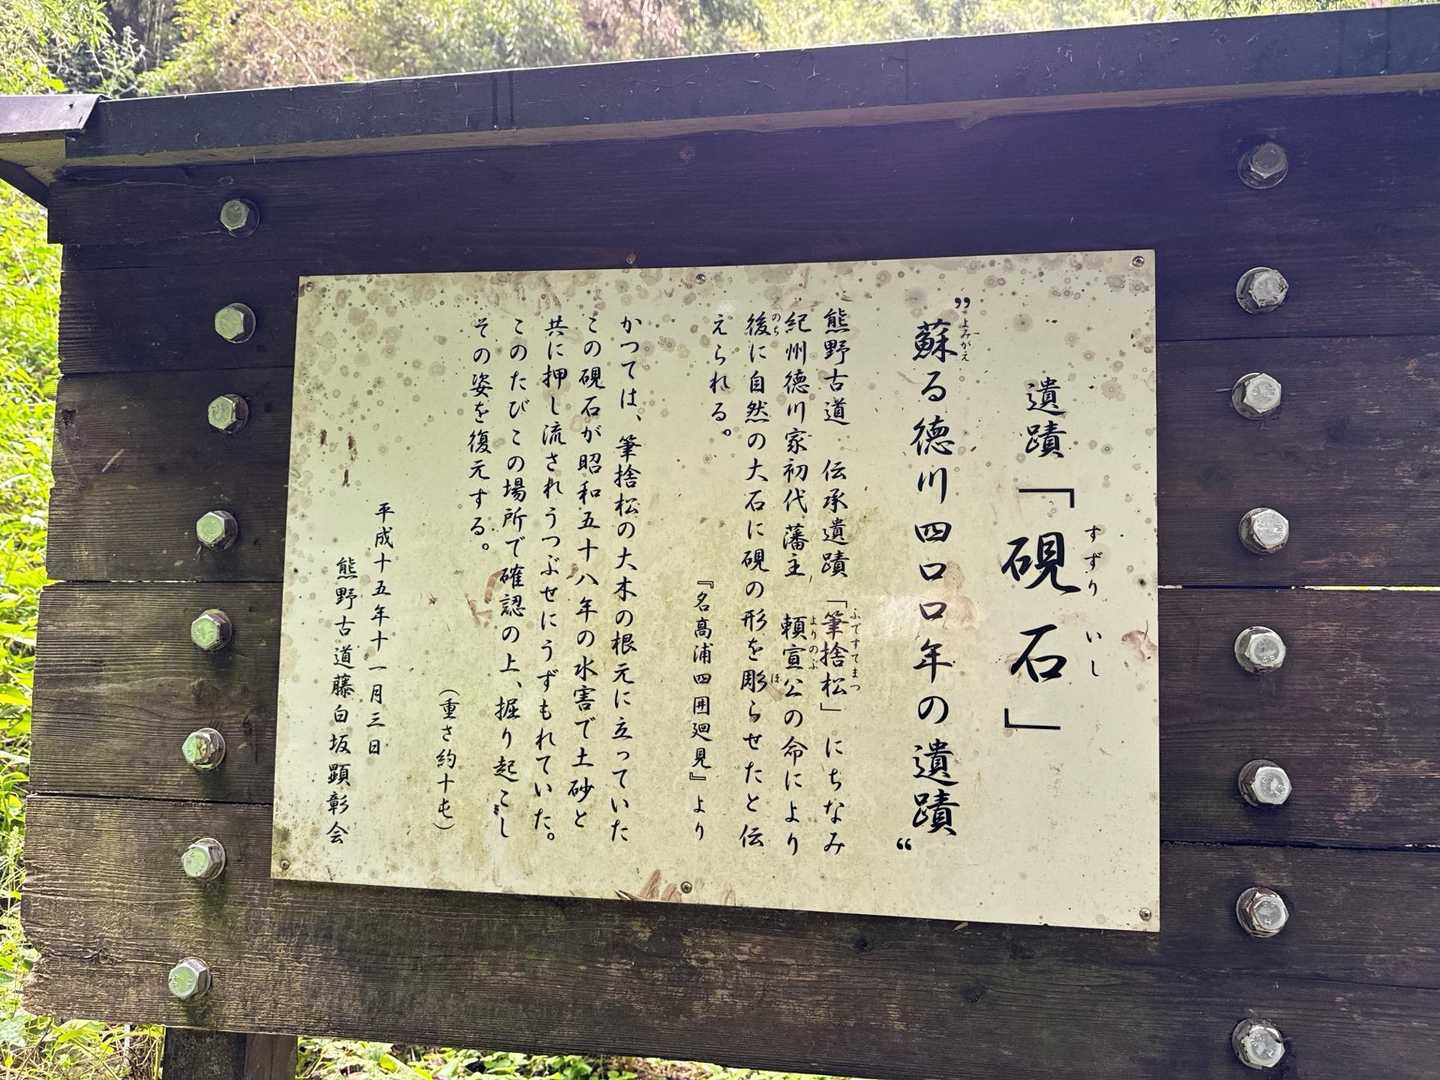 遺蹟「硯石」
すずり いし
〝蘇る徳川四〇〇年の遺蹟〟
よみがえ
熊野古道 伝承遺蹟「筆捨松」にちなみ
ふですてまつ
紀州徳川家初代藩主 頼宣公の命により
よりのぶ
後に自然の大石に硯の形を彫らせたと伝
のち ほ
えられる。
『名高浦四囲廻見』より
かつては、筆捨松の大木の根元に立っていた
この硯石が昭和五十八年の水害で土砂と
共に押し流されうつぶせにうずもれていた。
このたびこの場所で確認の上、掘り起こし
その姿を復元する。
(重さ約十屯)
平成十五年十一月三日
熊野古道藤白坂顕彰会